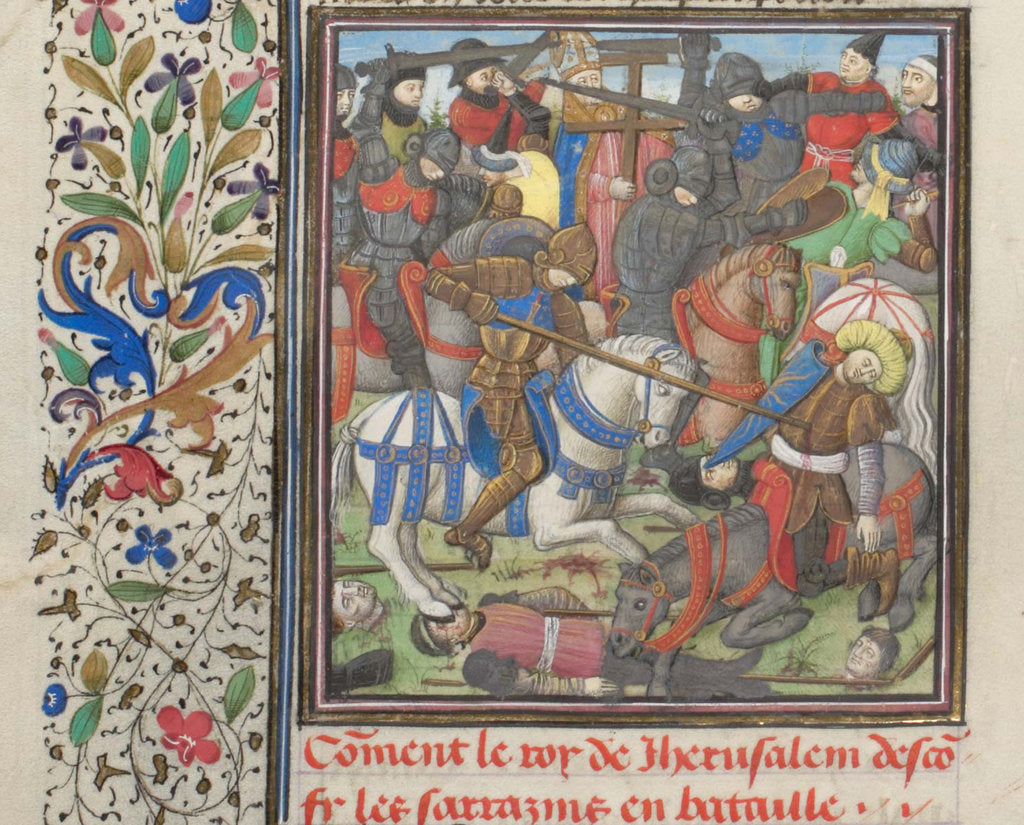 Cōment le roy de Jherusalem descō
fi les sarrazins en bataille .